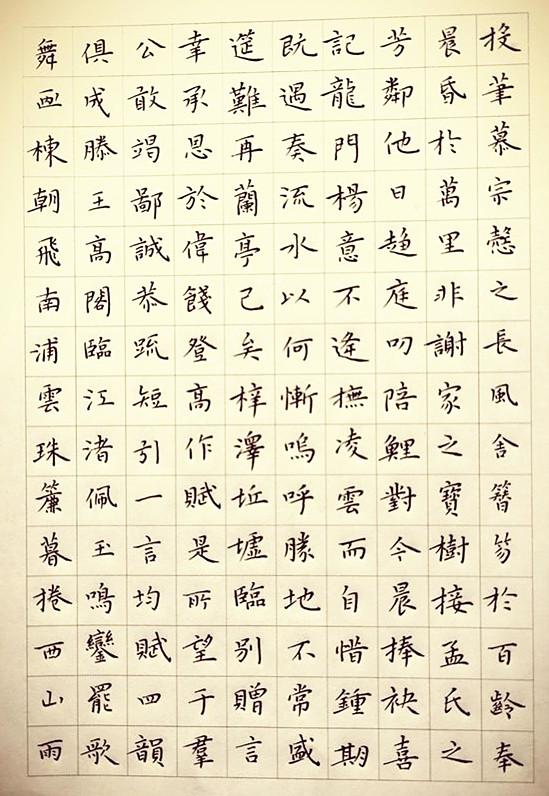 投筆慕宗愨之長風舍簪笏於百齡奉
晨昏於萬里非謝家之寶樹接孟氏之
芳鄰他日趨庭叨陪鯉對今晨捧袂喜
記龍門楊意不逢撫凌雲而自惜鍾期
既遇奏流水以何慚嗚呼勝地不常盛
筵難再蘭亭已矣梓澤坵墟臨別贈言
幸承恩於偉餞登高作賦是所望于羣
公敢竭鄙誠恭疏短引一言均賦四韻
俱成滕王高閣臨江渚佩玉鳴鑾罷歌
舞画棟朝飛南浦雲珠簾暮捲西山雨